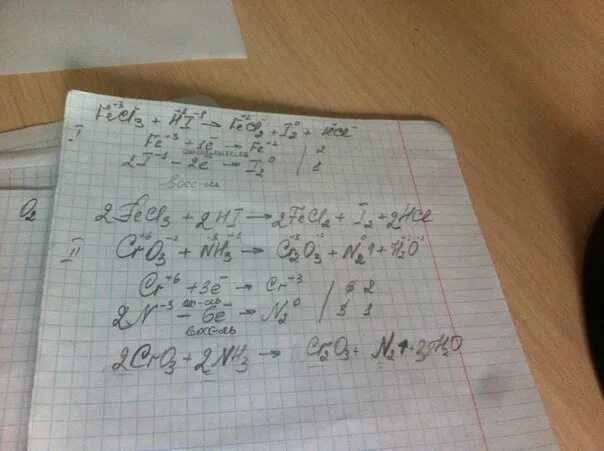 Fe⁺³Cl⁻₃ + H⁺¹I⁻¹ → Fe⁺²Cl⁻₂ + I₂⁰ + H⁺Cl⁻
I
Fe⁺³ + 1e⁻ → Fe⁺² | 2
окислитель
2I⁻¹ − 2e⁻ → I₂⁰ | 1
восс-ль
O₂
2FeCl₃ + 2HI → 2FeCl₂ + I₂ + 2HCl
II
CrO₃ + NH₃ → Cr₂O₃ + N₂↑ + H₂O
Cr⁺⁶ + 3e⁻ → Cr⁺³ | 6 2
ок-ль
2N⁻³ − 6e⁻ → N₂⁰ | 3 1
восс-ль
2CrO₃ + 2NH₃ → Cr₂O₃ + N₂↑ + 3H₂O